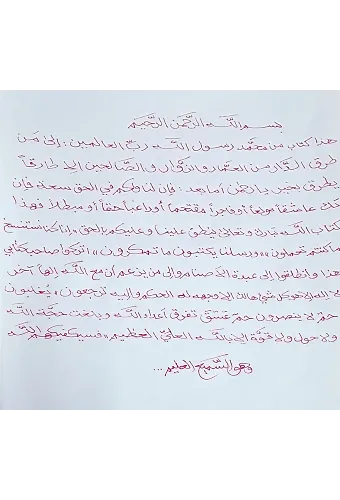 بسم اللّٰه الرَّحمٰن الرَّحيم
هذا كتاب من محمّد رسول اللّٰه ربّ العالمين: إلى مَن
طرق الدّار من العمّار والزوّار والصّالحين إلا طارقاً
يطرق بخير يا رحمن أما بعد: فإن لنا ولكم في الحق سعة فإن
تك عاشقاً مولعاً أو فاجراً مقتحماً أو داعياً حقاً أو مبطلاً فهذا
كتاب اللّٰه تبارك وتعالى ينطق علينا وعليكم بالحق «إنا كنا نستنسخ
ما كنتم تعملون» «ورسلنا يكتبون ما تمكرون» اتركوا صاحب كتابي
هذا وانطلقوا إلى عبدة الأصنام وإلى من يزعم أن مع اللّٰه إلهاً آخر
لا إله إلا هو كل شيء هالك إلا وجهه له الحكم وإليه ترجعون «يُغلبون
حمۤ لا ينصرون حمۤ عۤسۤقۤ تفرق أعداء اللّٰه وبلغت حجّة اللّٰه
ولا حول ولا قوّة إلا باللّٰه العليّ العظيم» «فسيكفيكهم اللّٰه
وهو السَّميع العليم...